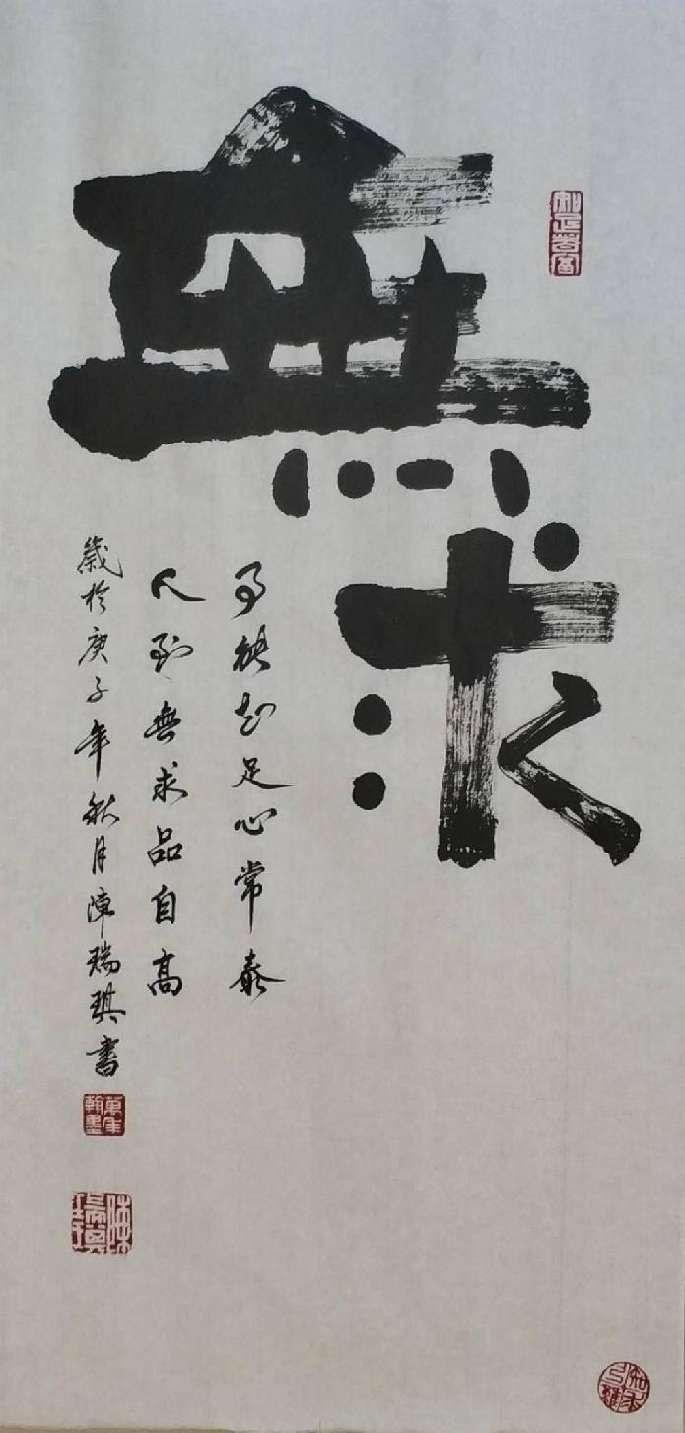 知足者富
無求
事能知足心常泰
人到無求品自高
歲於庚子年秋月陳瑞琪書